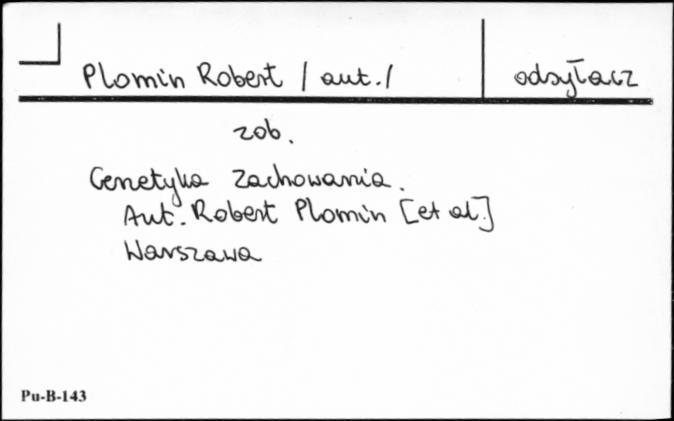 Plomin Robert / aut. /
odsyłacz
zob.
Genetyka Zachowania.
Aut. Robert Plomin [et al.]
Warszawa
Pu-B-143